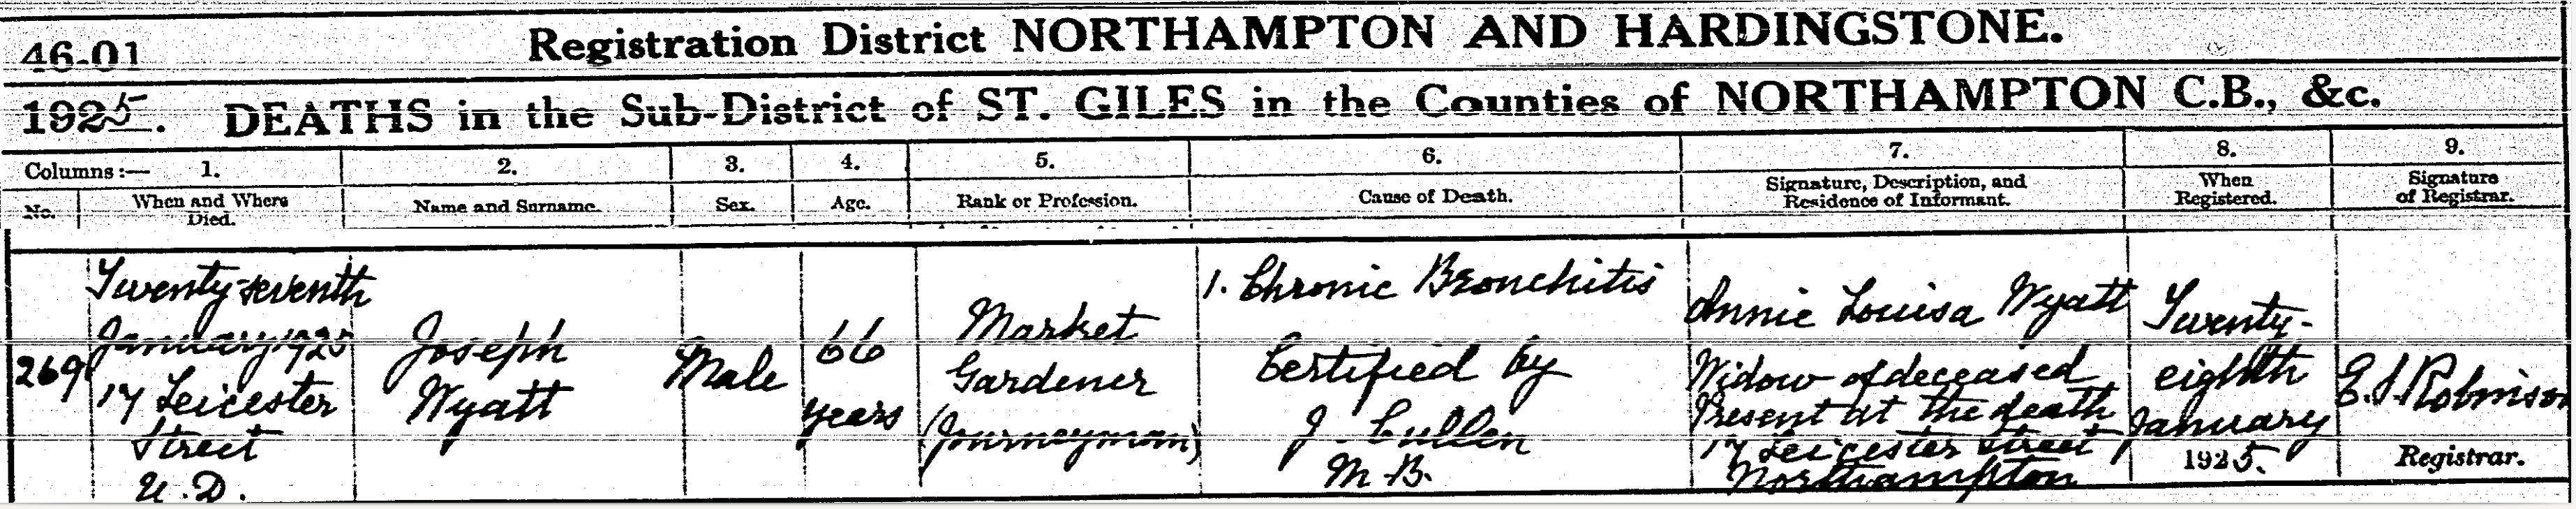 46-01
Registration District NORTHAMPTON AND HARDINGSTONE.
1925. DEATHS in the Sub-District of ST. GILES in the Counties of NORTHAMPTON C.B., &c.
Columns:— 1. 2. 3. 4. 5. 6. 7. 8. 9.
No. When and Where Died. Name and Surname. Sex. Age. Rank or Profession. Cause of Death. Signature, Description, and Residence of Informant. When Registered. Signature of Registrar.
269
Twenty-seventh
January 1925
17 Leicester
Street
U.D.
Joseph
Wyatt
Male
66
years
Market
Gardener
(Journeyman)
1. Chronic Bronchitis
Certified by
J. Cullen
M.B.
Annie Louisa Wyatt
Widow of deceased
Present at the death
17 Leicester Street
Northampton
Twenty-
eighth
January
1925.
E. J. Robinson
Registrar.